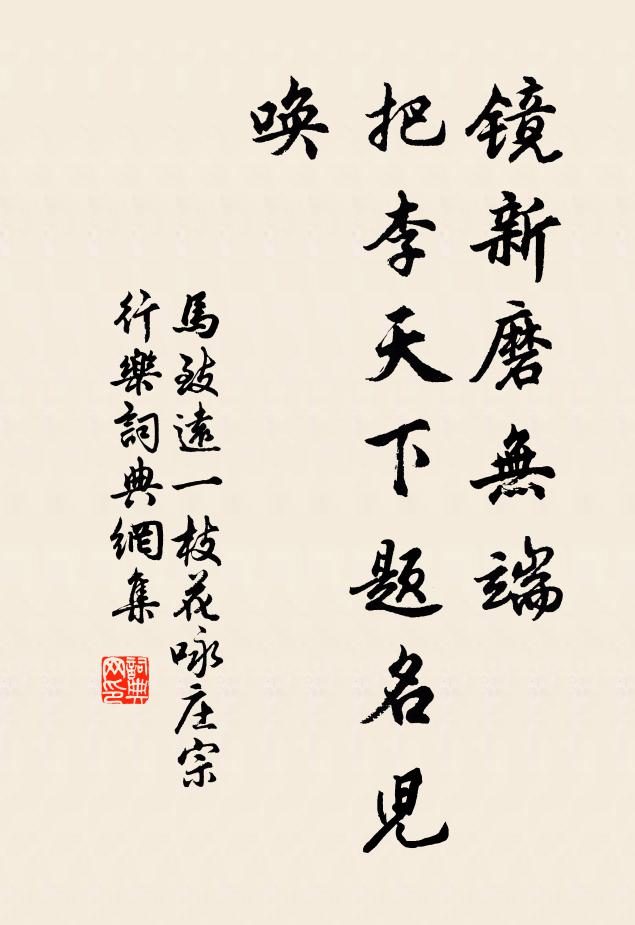 镜新磨無端
把李天下题名兒
唤
馬致遠一枝花咏庄宗
行樂詞典網集
詞典
网印